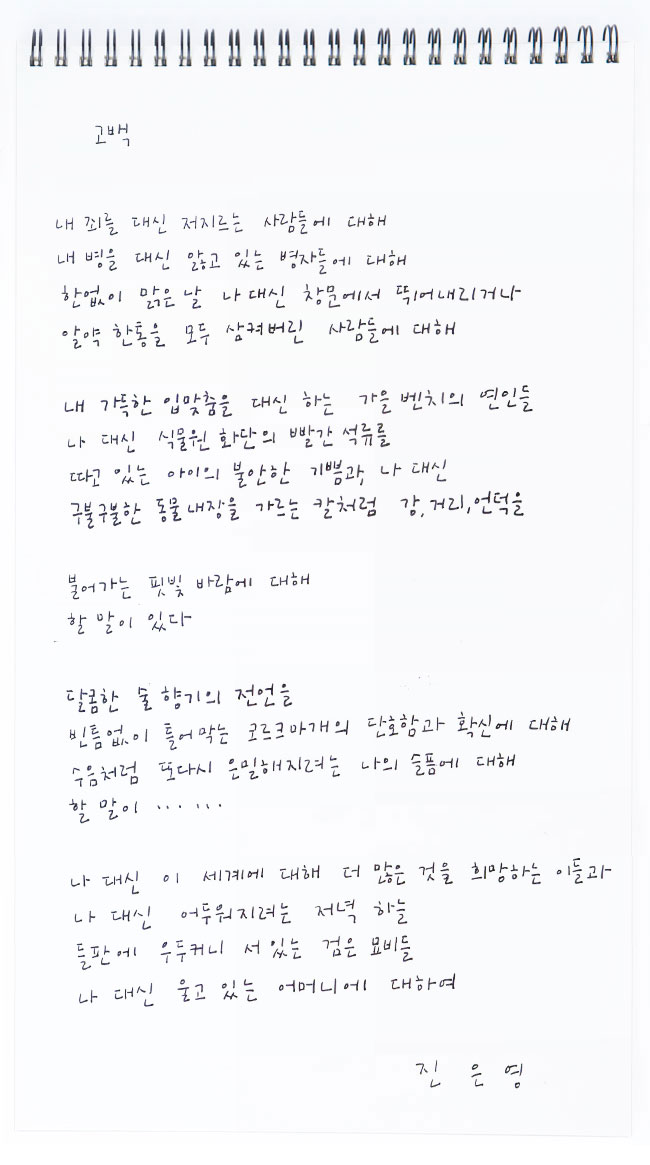 고백
내 죄를 대신 저지르는 사람들에 대해
내 병을 대신 앓고 있는 병자들에 대해
한없이 맑은 날 나 대신 창문에서 뛰어내리거나
알약 한통을 모두 삼켜버린 사람들에 대해
내 가득한 입맞춤을 대신 하는 가을 벤치의 연인들
나 대신 식물원 화단의 빨간 석류를
따고 있는 아이의 불안한 기쁨과, 나 대신
구불구불한 동물내장을 가르는 칼처럼 강, 거리, 언덕을
불어가는 핏빛 바람에 대해
할 말이 있다
달콤한 술 향기의 전언을
빈틈없이 틀어막는 코르크마개의 단호함과 확신에 대해
수음처럼 또다시 은밀해지려는 나의 슬픔에 대해
할 말이 ... ...
나 대신 이 세계에 대해 더 많은 것을 희망하는 이들과
나 대신 어두워지려는 저녁 하늘
들판에 우두커니 서있는 검은 묘비들
나 대신 울고 있는 어머니에 대하여
진 은 영